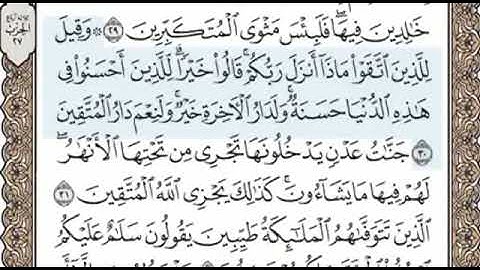 خَٰلِدِينَ فِيهَاۖ فَلَبِئۡسَ مَثۡوَى ٱلۡمُتَكَبِّرِينَ ٢٩ ۞ وَقِيلَ
لِلَّذِينَ ٱتَّقَوۡاْ مَاذَآ أَنزَلَ رَبُّكُمۡۚ قَالُواْ خَيۡرٗاۗ لِّلَّذِينَ أَحۡسَنُواْ فِي
هَٰذِهِ ٱلدُّنۡيَا حَسَنَةٞۚ وَلَدَارُ ٱلۡأٓخِرَةِ خَيۡرٞۚ وَلَنِعۡمَ دَارُ ٱلۡمُتَّقِينَ
٣٠ جَنَّٰتُ عَدۡنٖ يَدۡخُلُونَهَا تَجۡرِي مِن تَحۡتِهَا ٱلۡأَنۡهَٰرُۖ
لَهُمۡ فِيهَا مَا يَشَآءُونَۚ كَذَٰلِكَ يَجۡزِي ٱللَّهُ ٱلۡمُتَّقِينَ ٣١
ٱلَّذِينَ تَتَوَفَّىٰهُمُ ٱلۡمَلَٰٓئِكَةُ طَيِّبِينَ يَقُولُونَ سَلَٰمٌ عَلَيۡكُمُ
الحزب
٢٧